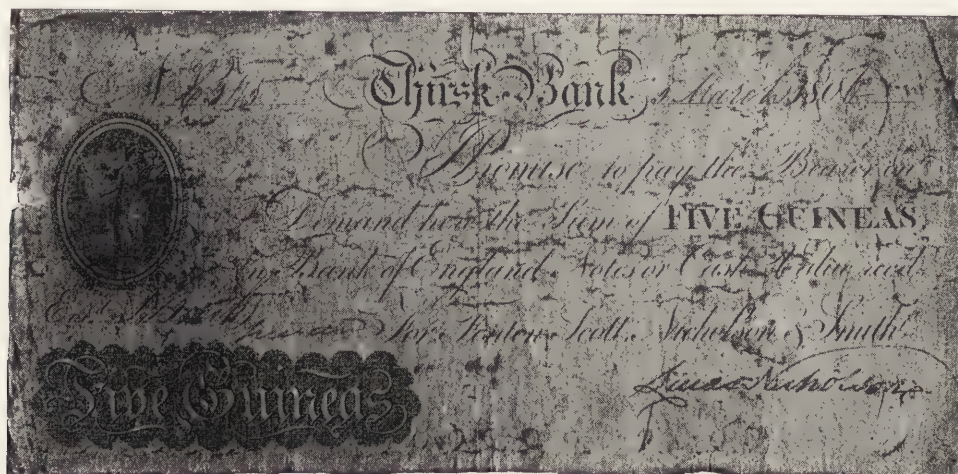 Thirsk Bank
I Promise to pay the Bearer on
Demand here the Sum of FIVE GUINEAS,
in Bank of England Notes or Cash Value recd.
For Fenton, Scott, Nicholson & Smith
Five Guineas
Nicholson